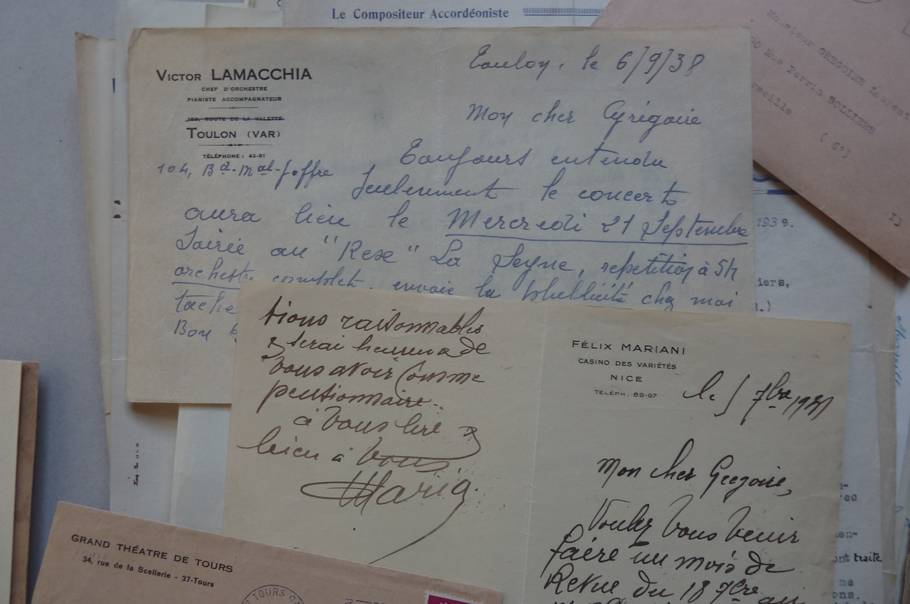 Le Compositeur Accordéoniste
VICTOR LAMACCHIA
CHEF D'ORCHESTRE
PIANISTE ACCOMPAGNATEUR
ROUTE DE LA VALETTE
TOULON (VAR)
TÉLÉPHONE: 43-81
104, Bd. Mal. Joffre
Toulon, le 6/9/38
Mon cher Grégoire
Toujours entendu
Seulement le concert
aura lieu le Mercredi 21 Septembre
Soirée au "Rex" La Seyne, repetition à 5h
orchestre complet, envoie la publicité chez moi
tache
Bon
Monsieur GREGOIRE
Rue Ferris
Marseille
(5°)
1939.
iers,
tions raisonnables
serai heureux de
vous avoir comme
pensionnaire.
à vous lire
bien à vous
Maria.
FÉLIX MARIANI
CASINO DES VARIÉTÉS
NICE
TÉLÉPH. 89-97
le 5 7bre
Mon cher Gregoire,
Voulez vous venir
faire un mois de
Revue du 18 7bre au
GRAND THÉATRE DE TOURS
34, rue de la Scellerie - 37-Tours
TOURS
ont traité